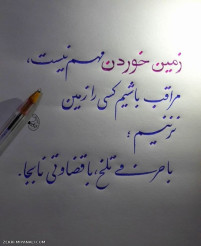 زمین خوردن مهم نیست،
مراقب باشیم کسی را زمین
نزنیم؛
با حرفی تلخ، با قضاوتی نابجا.